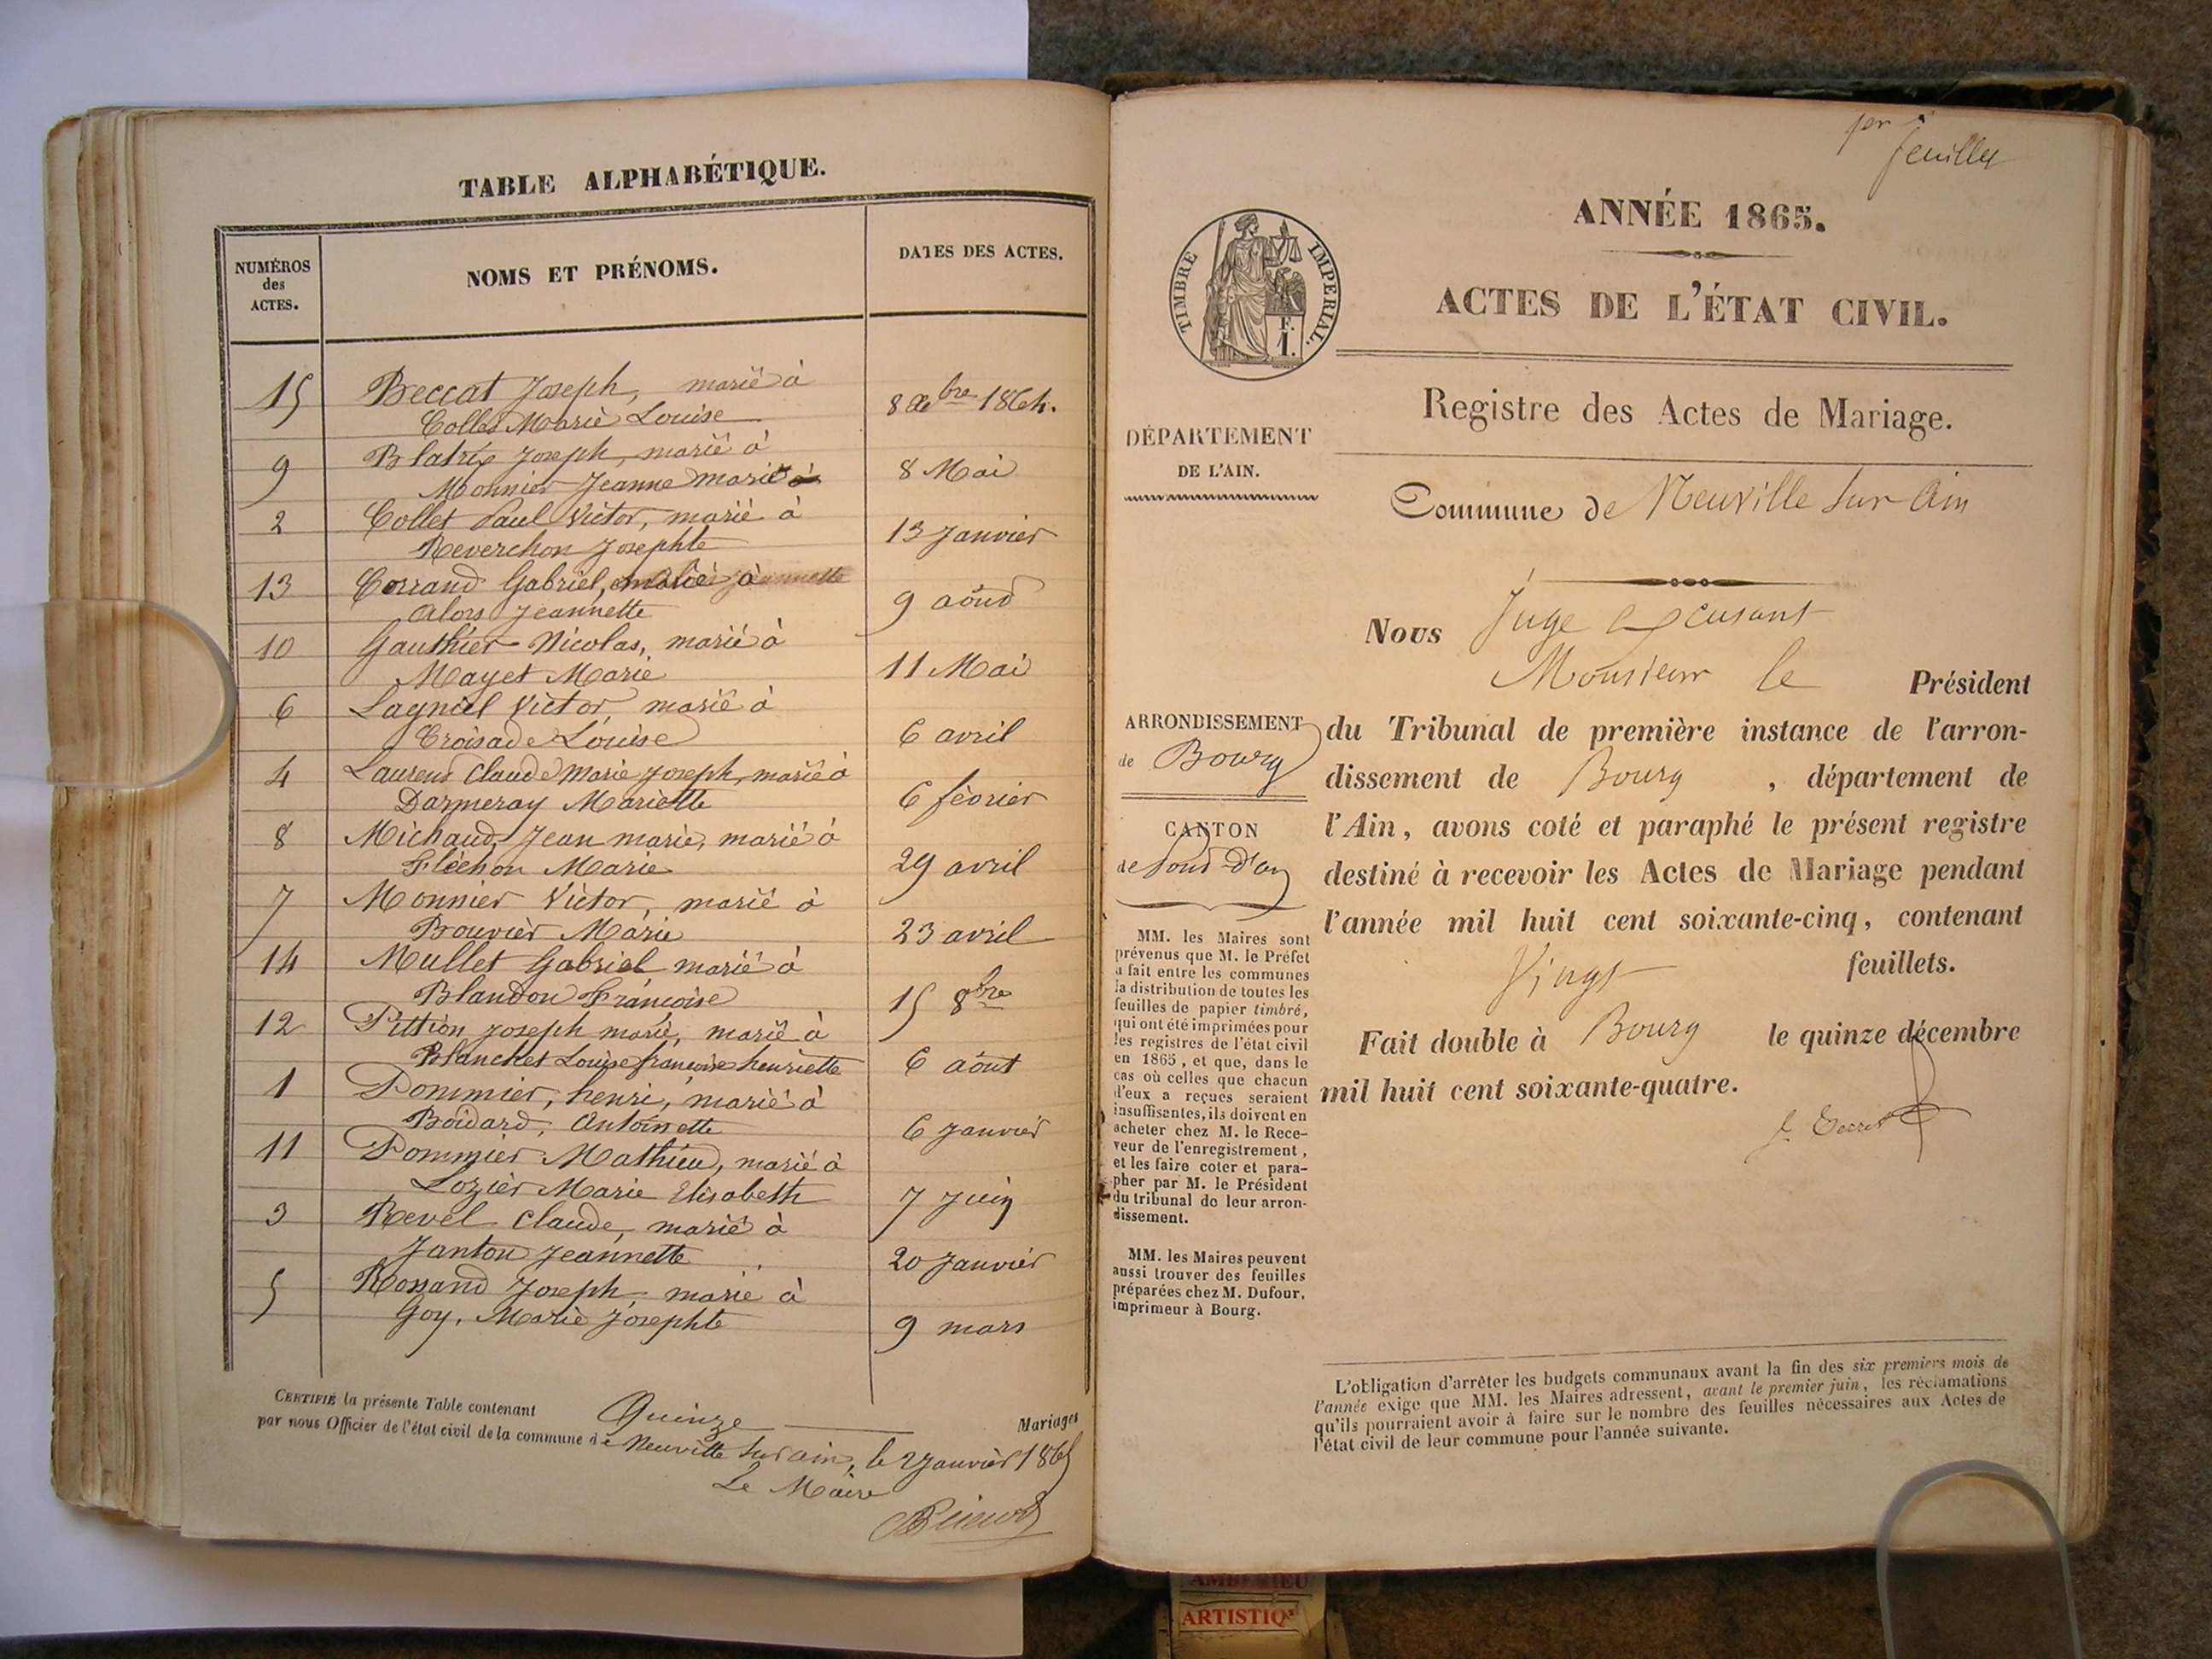 TABLE ALPHABÉTIQUE.
NUMÉROS des ACTES.
NOMS ET PRÉNOMS.
DATES DES ACTES.
15 Beccat Joseph, marié à
Collet Marie Louise 8 Xbre 1864.
9 Blatrix Joseph, marié à
Monnier Jeanne marie 8 Mai
2 Collet Paul Victor, marié à
Reverchon Josephte 13 Janvier
13 Corrand Gabriel, marié à
Alors Jeannette 9 aôud
10 Gauthier Nicolas, marié à
Mayet Marie 11 Mai
6 Lagniel Victor, marié à
Croisade Louise 6 avril
4 Laurend Claude Marie Joseph, marié à
Darmeray Mariette 6 février
8 Michaud, Jean marie, marié à
Fléchon Marie 29 avril
7 Monnier Victor, marié à
Bouvier Marie 23 avril
14 Mullet Gabriel marié à
Blandon Françoise 15 8bre
12 Pittion Joseph marie, marié à
Blanchet Louise françoise henriette 6 aôut
1 Pommier, henri, marié à
Boidard, Antoinette 6 Janvier
11 Pommier Mathieu, marié à
Lozier Marie Elisabeth 7 Juin
3 Revel Claude, marié à
Janton Jeannette 20 Janvier
5 Rossand Joseph, marié à
Goy, Marie Josephte 9 mars
CERTIFIÉ la présente Table contenant Quinze Mariages
par nous Officier de l'état civil de la commune de Neuville sur ain, le 2 Janvier 1865
Le Maire
1er feuillet
ANNÉE 1865.
TIMBRE IMPERIAL.
F.
1.
ACTES DE L'ÉTAT CIVIL.
Registre des Actes de Mariage.
DÉPARTEMENT
DE L'AIN.
Commune de Neuville sur Ain
Nous Juge excusant
Monsieur le Président
du Tribunal de première instance de l'arron-
dissement de Bourg, département de
l'Ain, avons coté et paraphé le présent registre
destiné à recevoir les Actes de Mariage pendant
l'année mil huit cent soixante-cinq, contenant
Vingt feuillets.
Fait double à Bourg le quinze décembre
mil huit cent soixante-quatre.
ARRONDISSEMENT
de Bourg
CANTON
de Pont-d'ain
MM. les Maires sont
prévenus que M. le Préfet
a fait entre les communes
la distribution de toutes les
feuilles de papier timbré,
qui ont été imprimées pour
les registres de l'état civil
en 1865, et que, dans le
cas où celles que chacun
d'eux a reçues seraient
insuffisantes, ils doivent en
acheter chez M. le Rece-
veur de l'enregistrement,
et les faire coter et para-
pher par M. le Président
du tribunal de leur arron-
dissement.
MM. les Maires peuvent
aussi trouver des feuilles
préparées chez M. Dufour,
imprimeur à Bourg.
L'obligation d'arrêter les budgets communaux avant la fin des six premiers mois de
l'année exige que MM. les Maires adressent, avant le premier juin, les réclamations
qu'ils pourraient avoir à faire sur le nombre des feuilles nécessaires aux Actes de
l'état civil de leur commune pour l'année suivante.
AMBERIEU
ARTISTIQ